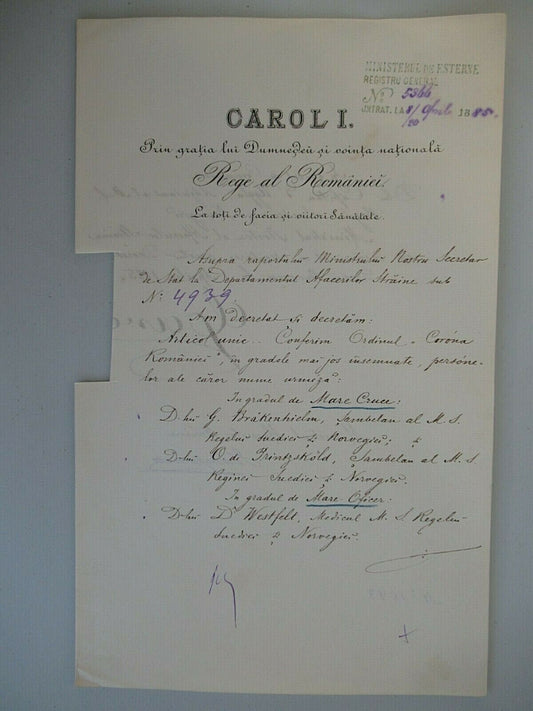 MINISTERUL DE ESTERNE
REGISTRU GENERAL
No 5366
INTRAT. LA 8/20 Aprile 1885
CAROL I.
Prin grația lui Dumneḑeŭ și voința națională
Rege al României.
La toți de facia și viitori Sănătate.
Asupra raportului Ministrului Nostru Secretar
de Stat la Departamentul Afacerilor Străine sub
No. 4939.
Am decretat și decretăm:
Articol unic.. Conferim Ordinul „Coróna
României", in gradele mai jos insemnate, persóne-
lor ale căror nume urméză:
In gradul de Mare Cruce:
D-lui G. Bråkenhielm, Șambelan al M. S.
Regelui Suediei și Norvegiei; și
D-lui O. de Printzsköld, Șambelan al M. S.
Reginei Suediei și Norvegiei.
In gradul de Mare Oficer:
D-lui Dr Westfelt, Medicul M. S. Regelui
Suediei și Norvegiei.